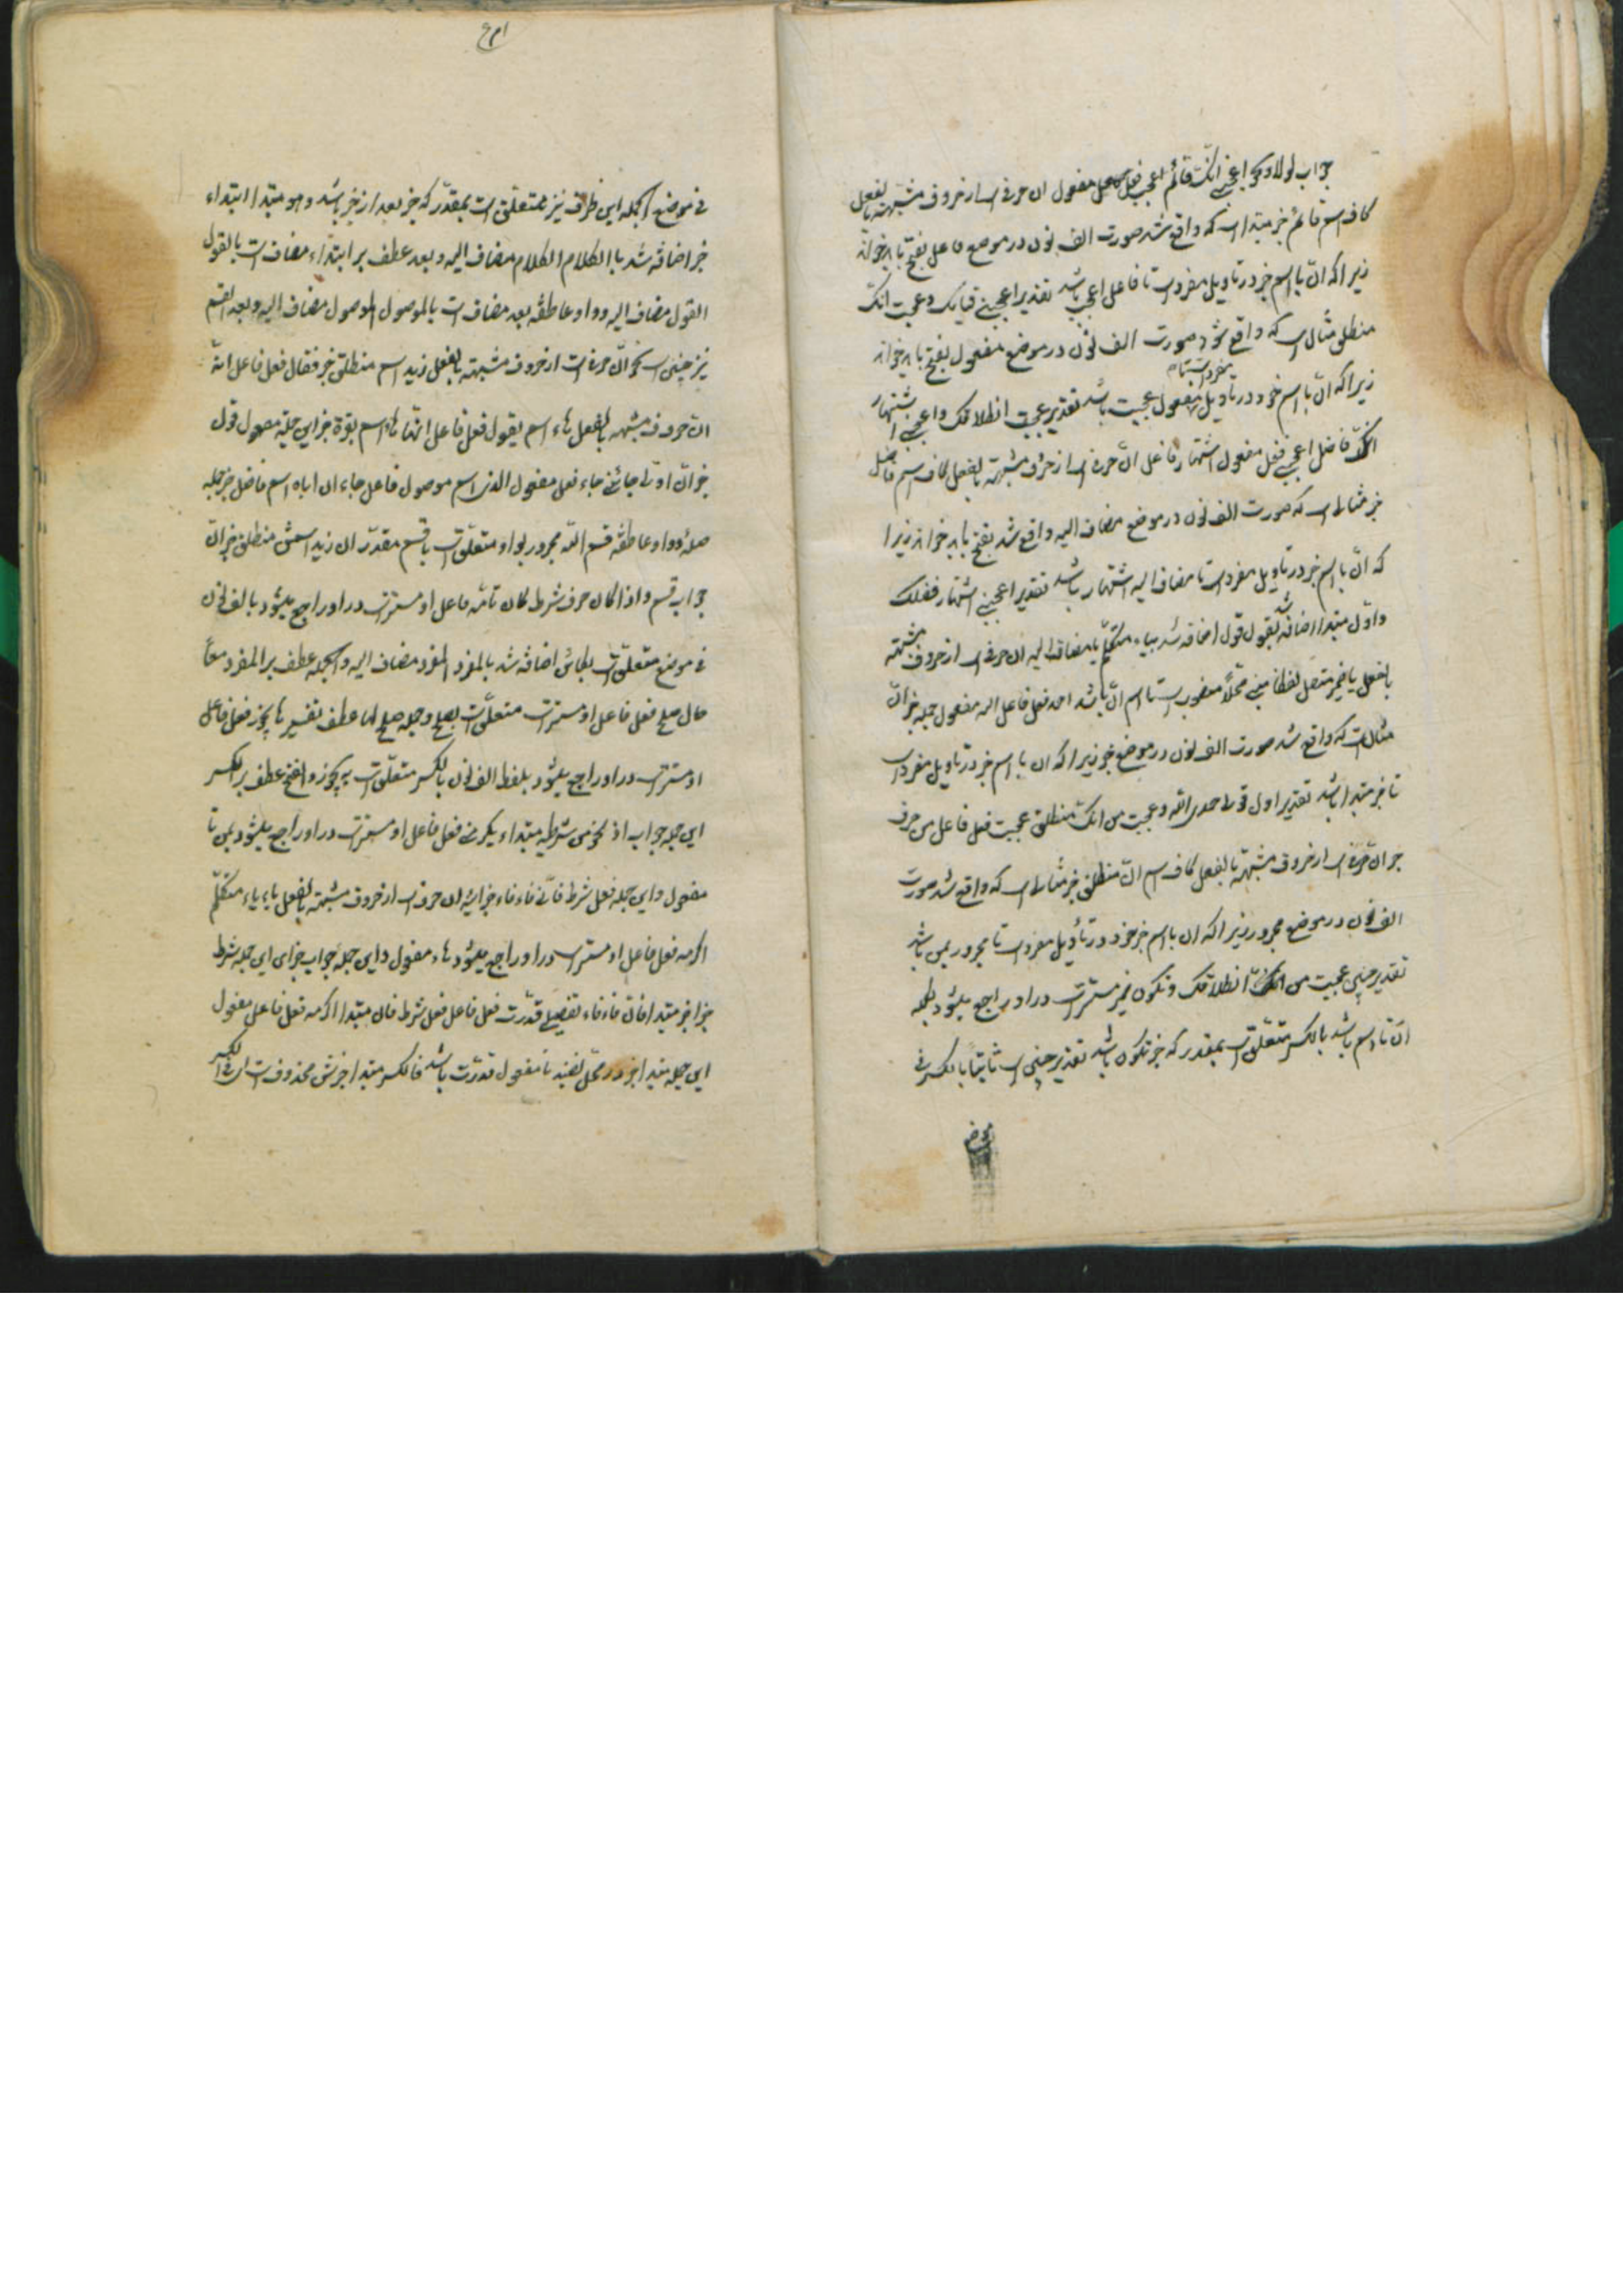 جواب لولا و نحو اعجبنی انّک قائم اعجب فعل مفعول ان حرفی است از حروف مشبهة بالفعل
کاف اسم قائم خبر مبتدا است که واقع شد صورت الف نون در موضع فاعل بفتح باید خواند
زیرا که انّ با اسم خبر در تاویل مفرد است تا فاعل اعجب باشد تقدیر اعجبنی قیامک و عجبت انک
منطلق مثال است که واقع شود صورت الف نون در موضع مفعول بفتح باید خواند
زیرا که انّ با اسم خود در تاویل مفرد است تا مفعول عجبت باشد تقدیر عجبت انطلاقک و اعجبنی اشتهار
انک فاضل اعجبنی فعل مفعول اشتهار فاعل انّ حرفی است از حروف مشبهة بالفعل کاف اسم فاضل
خبر مثال است که صورت الف نون در موضع مضاف الیه واقع شد بفتح باید خواند زیرا
که انّ با اسم خبر در تاویل مفرد است تا مضاف الیه اشتهار باشد تقدیر اعجبنی اشتهار فضلک
و اوّل مبتدا اضافه شد بقول قول اضافه شد بیاء متکلم یا مضاف الیه ان حرفی است از حروف مشبهة
بالفعل یا ضمیر متصل لفظا مبنی محلاً منصوب است تا اسم انّ باشد احمد فعل فاعل الله مفعول جمله خبر انّ
مثال است که واقع شد صورت الف نون در موضع خبر زیرا که ان با اسم خبر در تاویل مفرد است
تا خبر مبتدا باشد تقدیر اول قولی حمد الله و عجبت من انک منطلق عجبت فعل فاعل من حرف
جر انّ حرفی است از حروف مشبهة بالفعل کاف اسم انّ منطلق خبر مثال است که واقع شد صورت
الف نون در موضع مجرور زیرا که ان با اسم خبر خود در تأویل مفرد است تا مجرور بمن باشد
تقدیر چنین عجبت من انطلاقک و تکون ضمیر مستتر است در او راجع میشود بکلمه
انّ تا اسم باشد بالکسر متعلق است بمقدر که خبر تکون باشد تقدیر چنین است ثابتا بالکسر فی
موضع
فی موضع الجمله این ظرف نیز متعلق است بمقدّر که خبر بعد از خبر باشد و هو مبتدا ابتداء
خبر اضافه شد با الکلام الکلام مضاف الیه و بعد عطف بر ابتداء مضاف است بالقول
القول مضاف الیه و واو عاطفه بعد مضاف است بالموصول الموصول مضاف الیه و بعد القسم
نیز چنین است نحو انّ حرفی است از حروف مشبهة بالفعل زید اسم منطلق خبر فقال فعل فاعل انّه
انّ حروف مشبهة بالفعل هاء اسم یقول فعل فاعل انّها هاء اسم بقرة خبر این جمله مفعول قول
خبر انّ اوّلی جائنی جاء فعل مفعول الذی اسم موصول فاعل جاء ان اباه اسم فاضل خبر جمله
صله و واو عاطفه قسم الله مجرور بواو متعلق است باقسم مقدّر ان زید اسمش منطلق خبر انّ
جواب قسم و اذا کان حرف شرط کان تامّه فاعل او مستتر است در او راجع میشود بالف نون
فی موضع متعلق است بکان اضافه شد بالمفرد المفرد مضاف الیه و الجمله عطف بر المفرد معاً
حال صلح فعل فاعل او مستتر است متعلق است بصلح و جمله صلح لها عطف تفسیر ها یجوز فعل فاعل
او مستتر است در او راجع میشود بلفظ الف نون بالکسر متعلق است به یجوز و الفتح عطف بر الکسر
این جمله جواب اذ نحو من شرطیه مبتداء یکرمنی فعل فاعل او مستتر است در او راجع میشود بمن تا
مفعول و این جمله فعل شرط فانّی فاء فاء جزائیه ان حرف است از حروف مشبهة بالفعل یاء یاء متکلّم
اکرمه فعل فاعل او مستتر است در او راجع میشود هاء مفعول و این جمله جواب جزای این جمله شرط
جزا خبر مبتدا فان فاء فاء تفصیلی قدّرت فعل فاعل فعل شرط فان مبتدا اکرمه فعل فاعل مفعول
این جمله مبتدا خبر در محل نصبند تا مفعول قدّرت باشد فالکسر مبتدا خبرش محذوف است